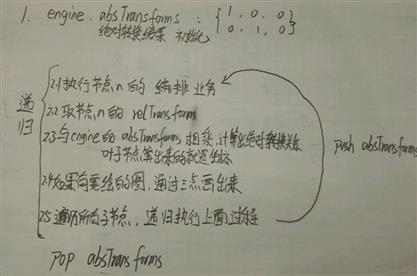 1. engine. absTransforms : { 1, 0, 0
0, 1, 0 }
绝对转换结果 初始化
递归
2.1 执行节点n的 编排业务
2.2 取节点n的 relTransform
2.3 与engine的absTransforms 相乘,计算出绝对转换关系
叶子节点,算出来的就是坐标
push absTransforms
2.4 如果有要绘的图,通过三点画出来
2.5 遍历所有子节点,递归执行上面过程
pop absTransforms